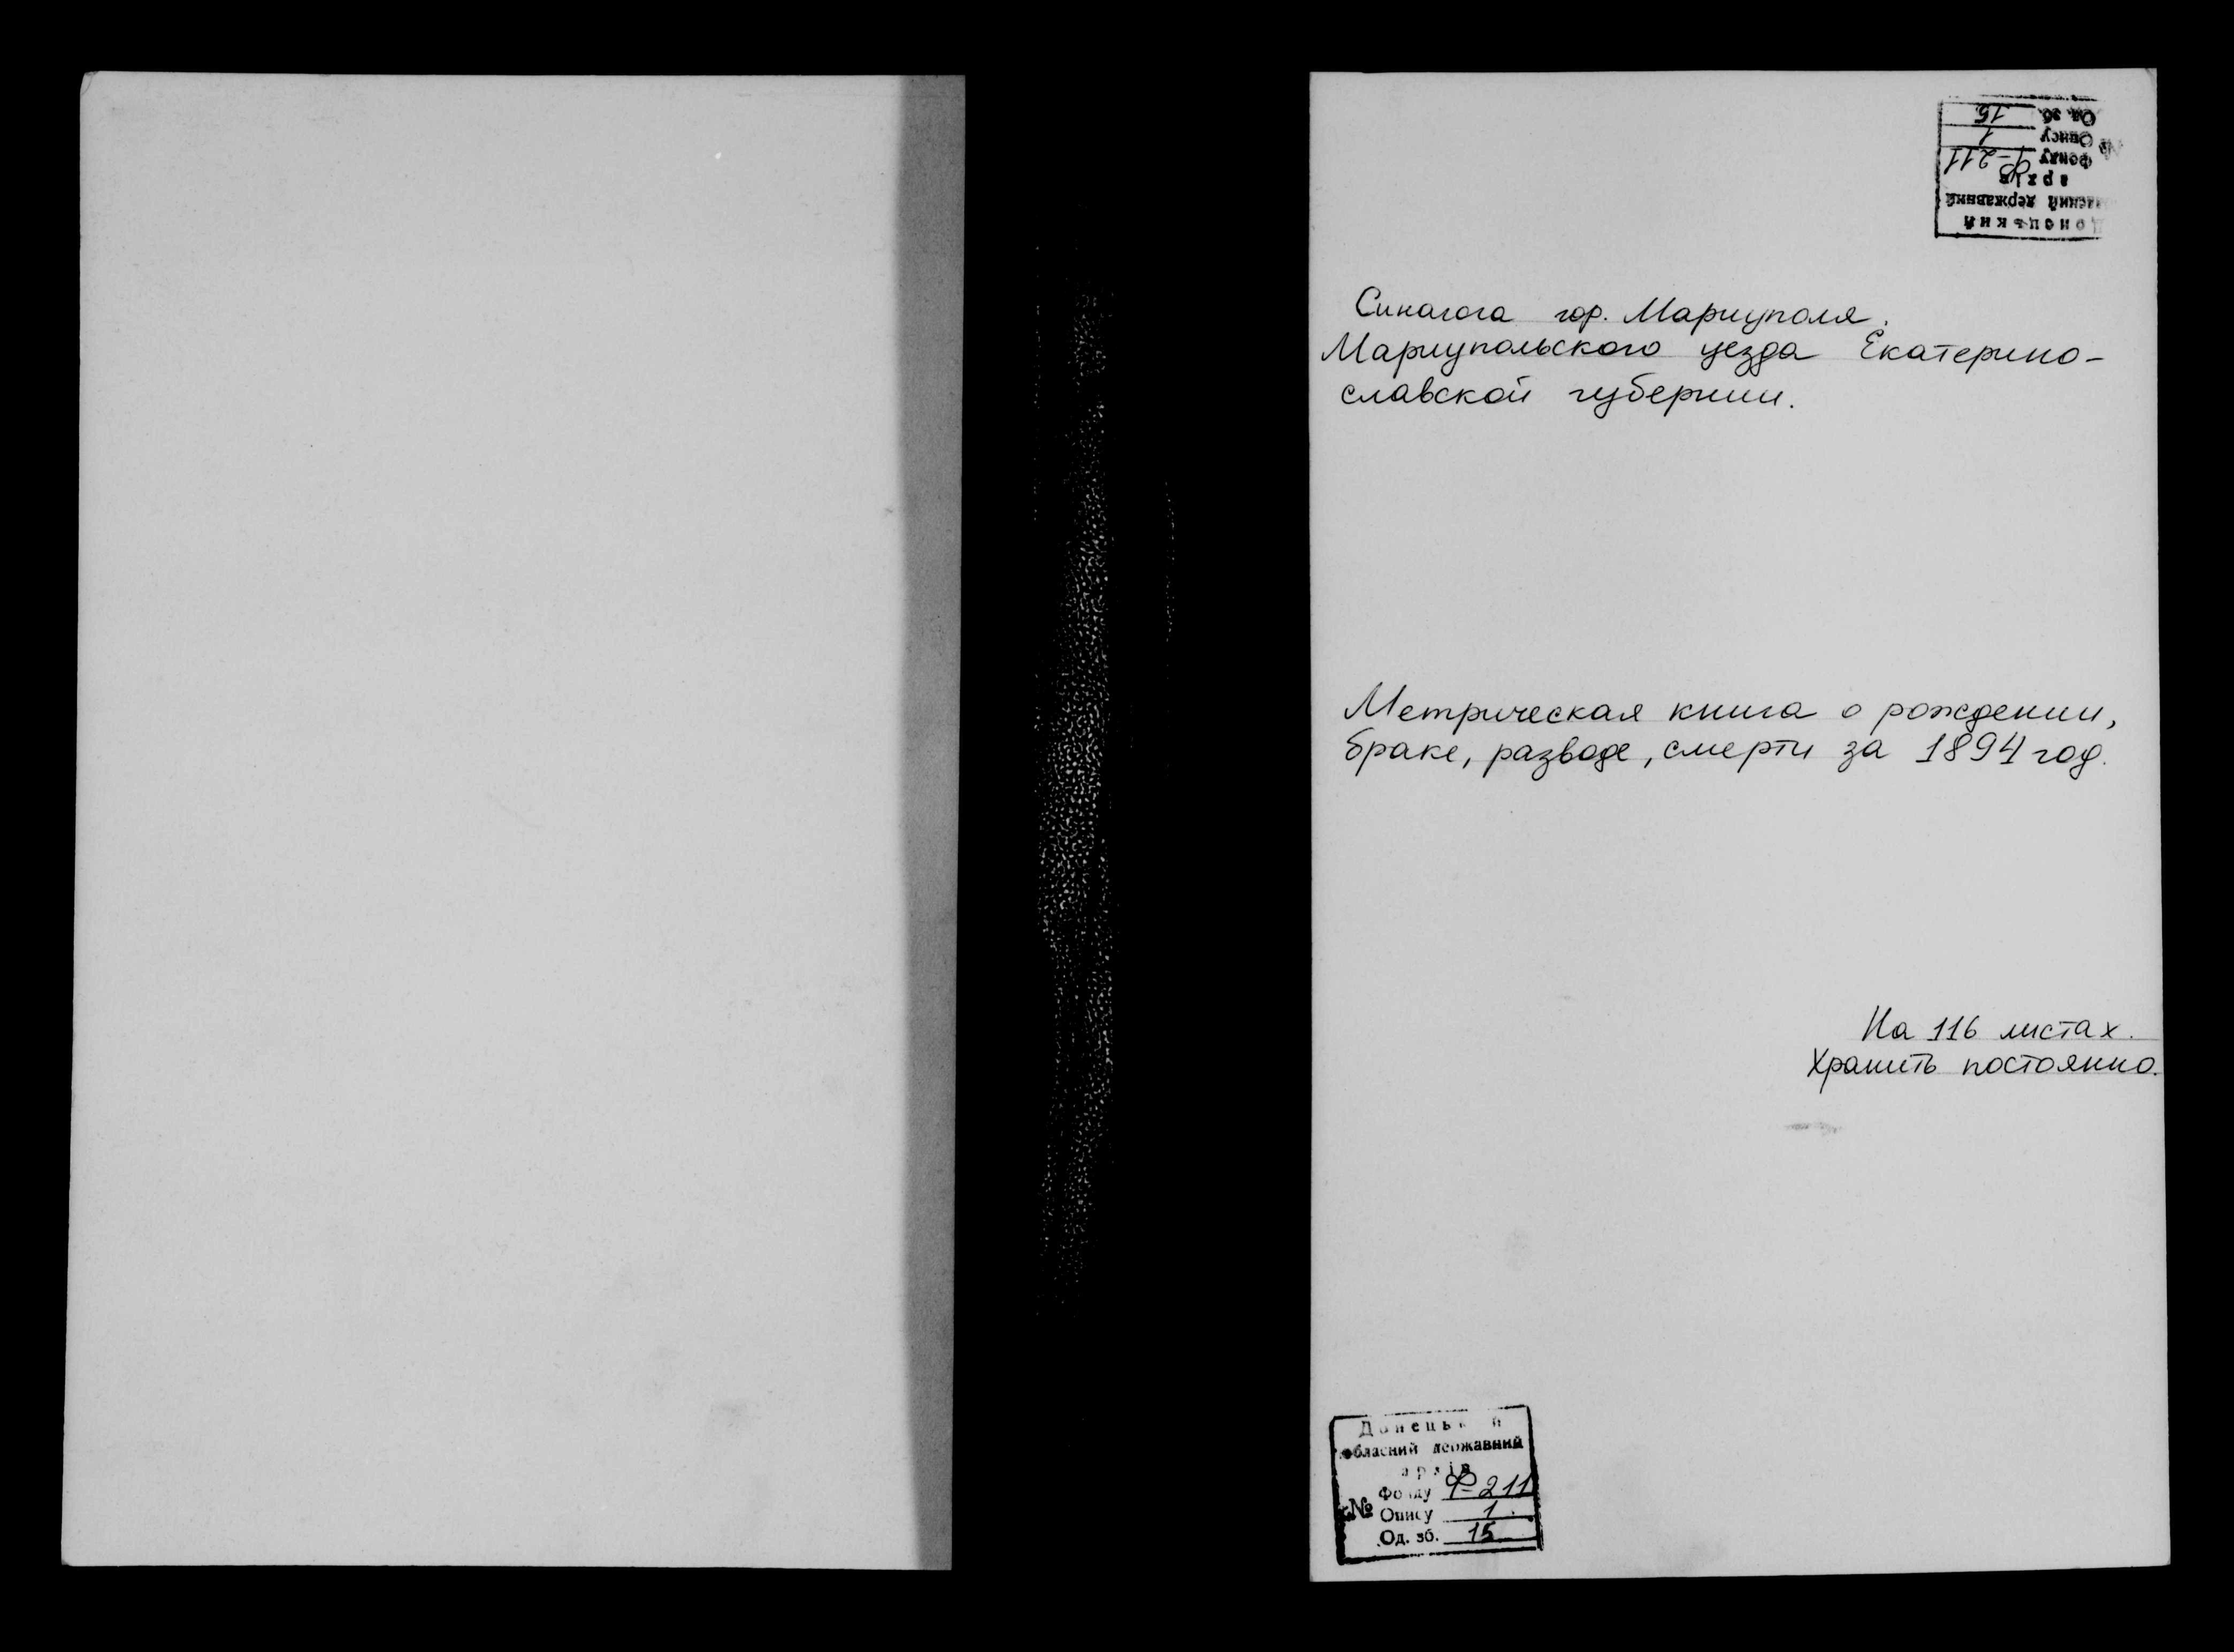 Донецький
обласний державний
архів
№
Фонду Ф-211
Опису 1
Од. зб. 15
Синагога гор. Мариуполя.
Мариупольского уезда Екатерино-
славской губернии.
Метрическая книга о рождении,
браке, разводе, смерти за 1894 год.
На 116 листах.
Хранить постоянно.
Донецький
обласний державний
архів
Фонду Ф-211
№ Опису 1
Од. зб. 15